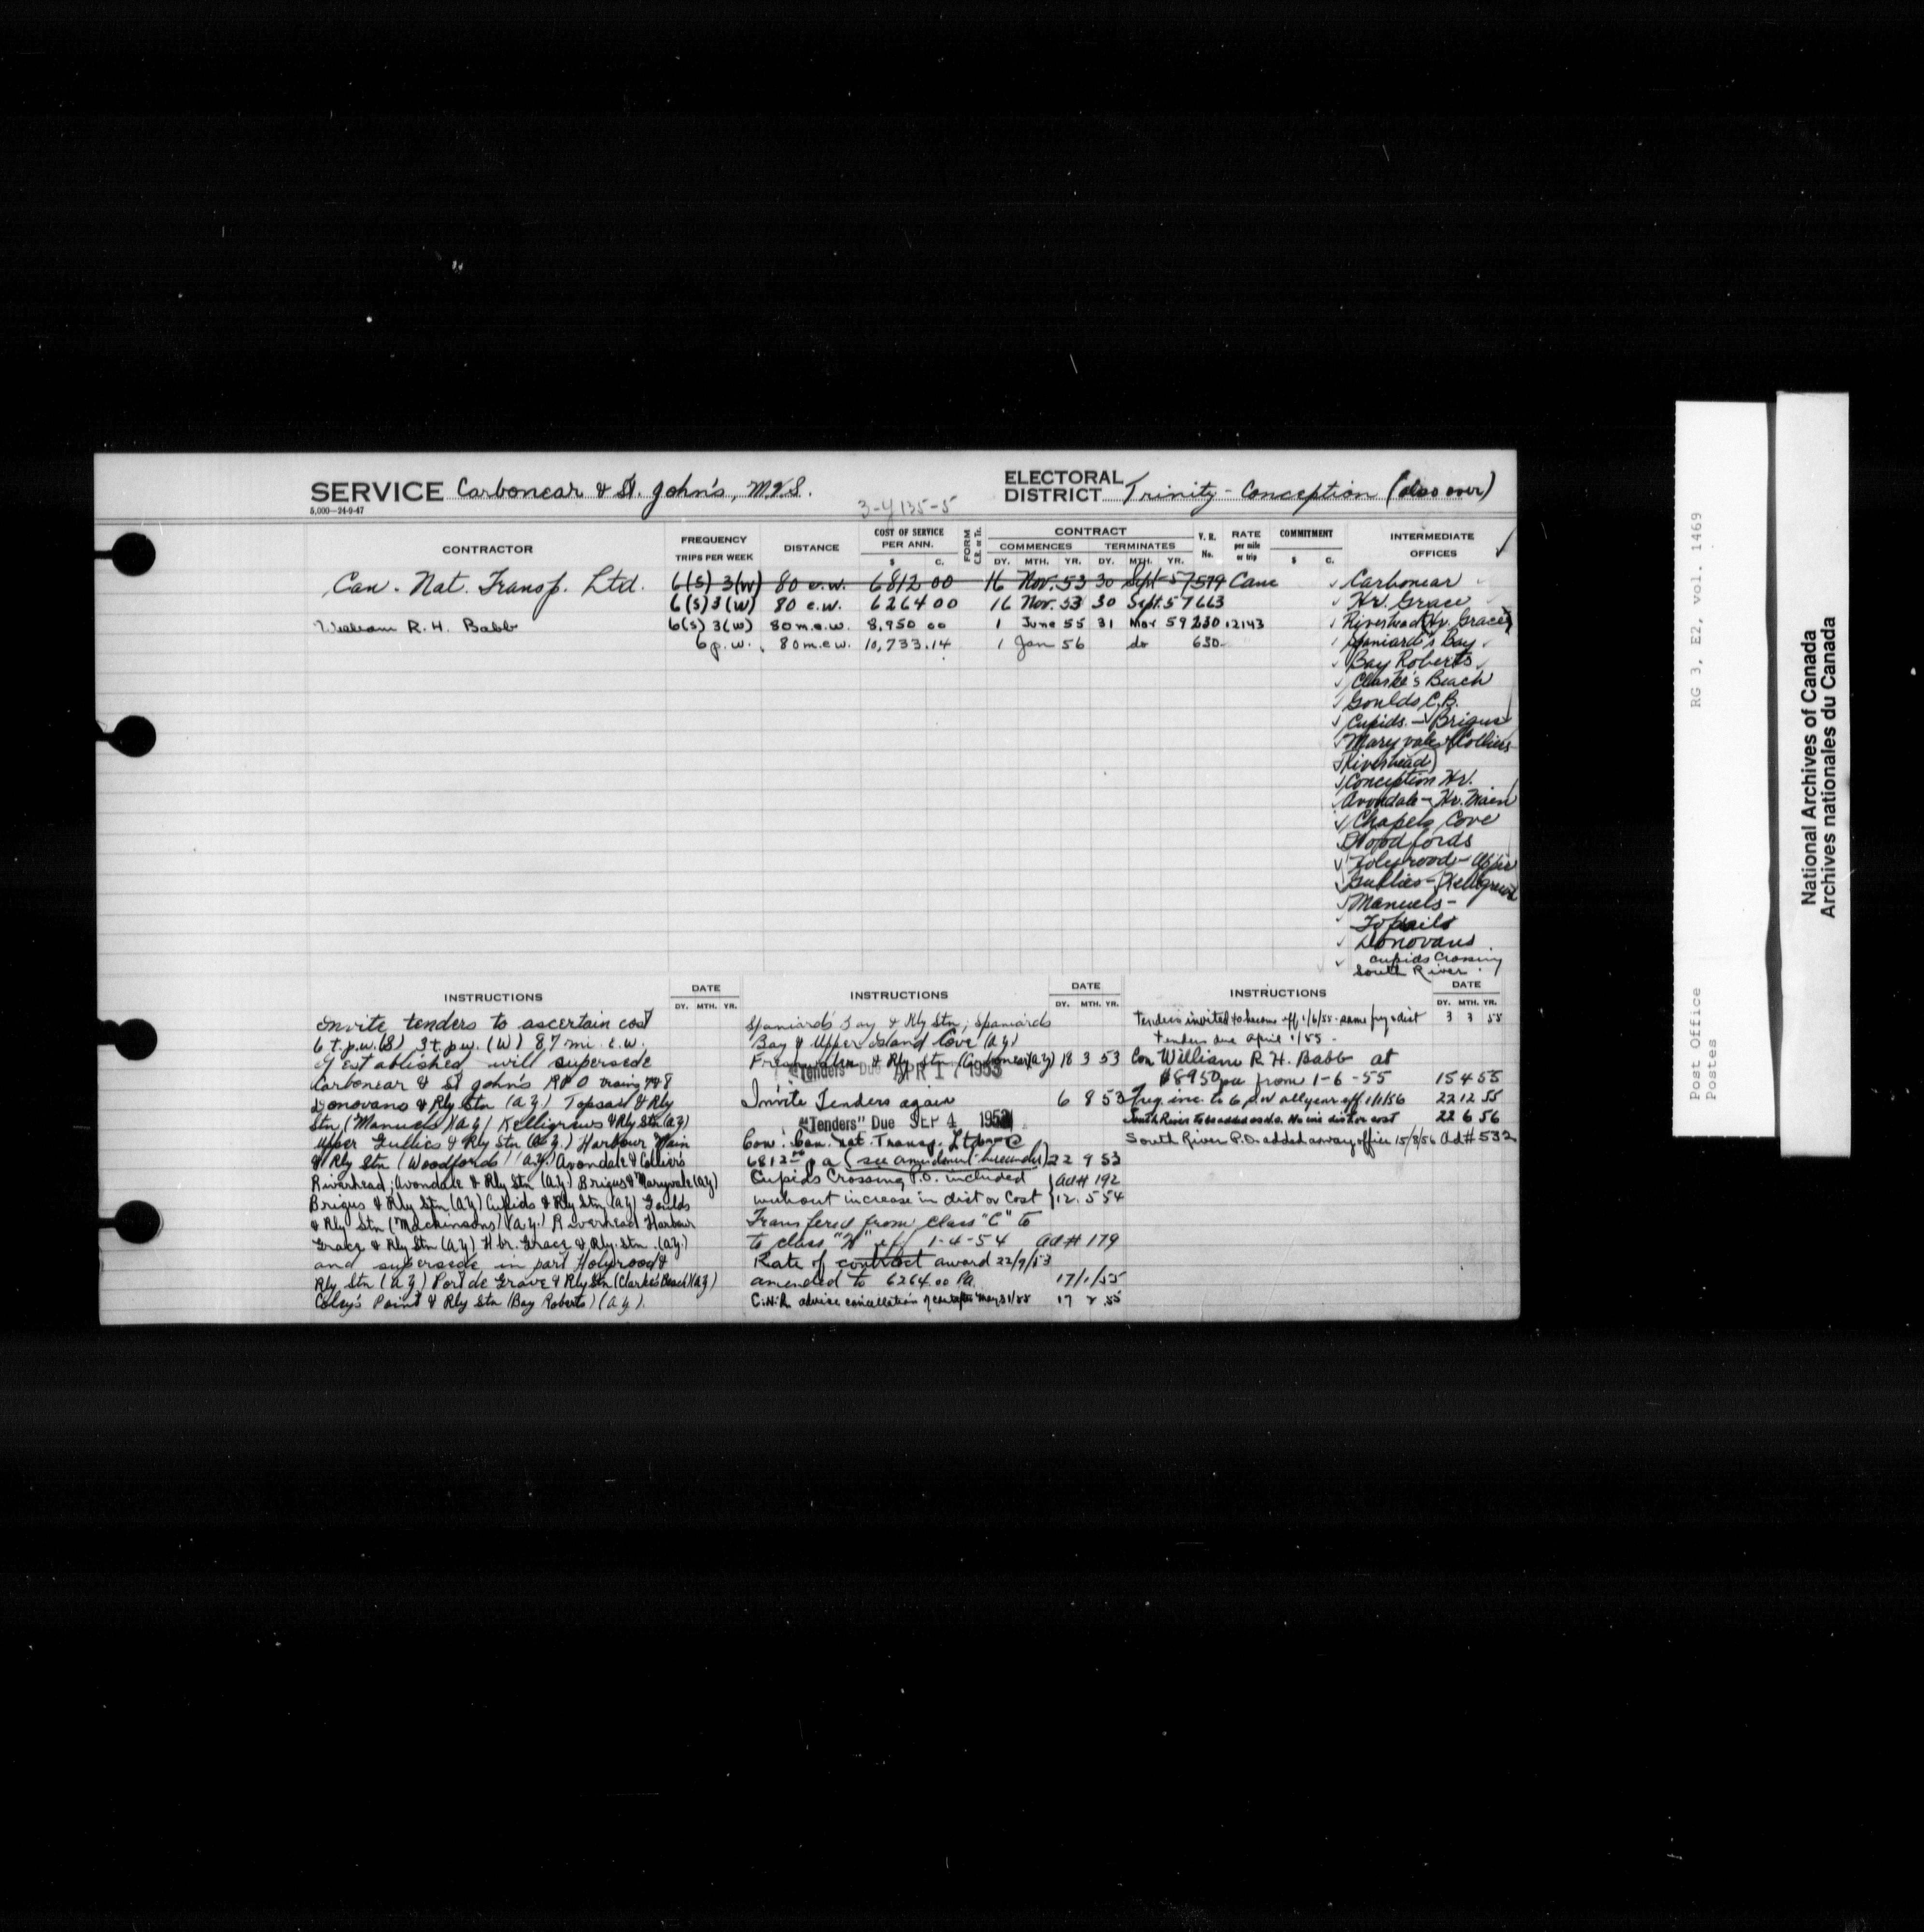 SERVICE Carbonear & St. John's, M.V.S.
5,000—24-9-47
3-Y135-5
ELECTORAL DISTRICT Trinity - Conception (also over)
CONTRACTOR FREQUENCY TRIPS PER WEEK DISTANCE COST OF SERVICE PER ANN. $ C. FORM C.R. or Tr. CONTRACT COMMENCES DY. MTH. YR. TERMINATES DY. MTH. YR. V. R. No. RATE per mile or trip COMMITMENT $ C. INTERMEDIATE OFFICES
Can. Nat. Transp. Ltd. 6(s) 3(w) 80 e.w. 6812 00 16 Nov. 53 30 Sept 57 579 Canc
6(s) 3(w) 80 e.w. 6264 00 16 Nov. 53 30 Sept. 57 663
William R. H. Babb 6(s) 3(w) 80 m.e.w. 8,950 00 1 June 55 31 Mar 59 230 12143
6 p.w. 80 m.e.w. 10,733.14 1 Jan 56 do 630
Carbonear
Hr. Grace
Riverhead (Hr. Grace)
Spaniard's Bay
Bay Roberts
Clarke's Beach
Goulds C.B.
Cupids. - Brigus
Maryvale (Colliers
Riverhead)
Conception Hr.
Avondale - Hr. Main
Chapels Cove
Woodfords
Holyrood - Upper
Gullies - Kelligrews
Manuels -
Topsails
Donovans
Cupids Crossing
South River
INSTRUCTIONS DATE DY. MTH. YR.
Invite tenders to ascertain cost
6 t.p.w. (S) 3 t.p.w. (W) 87 mi. e.w.
If established will supersede
Carbonear & St John's RPO trains 7 & 8
Donovans & Rly Stn (a.y.) Topsail & Rly
Stn (Manuels) (a.y) Kelligrews & Rly Stn (a.y)
Upper Gullies & Rly Stn (a.y.) Harbour Main
& Rly Stn (Woodfords) (a.y.) Avondale & Colliers
Riverhead; Avondale & Rly Stn (a.y.) Brigus & Maryvale (a.y)
Brigus & Rly Stn (a.y) Cupids & Rly Stn (a.y) Goulds
& Rly Stn (Mackinsons) (a.y.) Riverhead Harbour
Grace & Rly Stn (a.y) Hbr. Grace & Rly. Stn. (a.y.)
and supersede in part Holyrood &
Rly Stn (a.y) Port de Grave & Rly Stn (Clarke's Beach) (a.y)
Coley's Point & Rly Stn (Bay Roberts) (a.y).
INSTRUCTIONS DATE DY. MTH. YR.
Spaniard's Bay & Rly Stn; Spaniards
Bay & Upper Island Cove (a.y)
Freshwater & Rly Stn (Carbonear) (a.y) 18 3 53
"Tenders" Due APR 1 1953
Invite Tenders again 6 8 53
"Tenders" Due SEP 4 1953
Con. Can. Nat. Transp. Ltd C
6812.00 p a (see amendment hereunder) 22 9 53
Cupids Crossing P.O. included Ad # 192
without increase in dist or Cost 12. 5 54
Transfered from Class "C" to
to class "H" eff 1-4-54 Ad # 179
Rate of contract award 22/9/53
amended to 6264.00 Pa. 17/1/55
C.N.R. advise cancellation May 31/55 17 2 55
INSTRUCTIONS DATE DY. MTH. YR.
Tenders invited to become eff 1/6/55 - same freq & dist 3 3 55
Tenders due April 1/55 -
Con William R. H. Babb at
$8950 pa from 1-6-55 15 4 55
Freq. inc. to 6 p.w all year eff 1/1/56 22 12 55
South River to be added. No inc dist or cost 22 6 56
South River P.O. added as way office 15/8/56 Ad # 532
Post Office RG 3, E2, vol. 1469
Postes
National Archives of Canada
Archives nationales du Canada